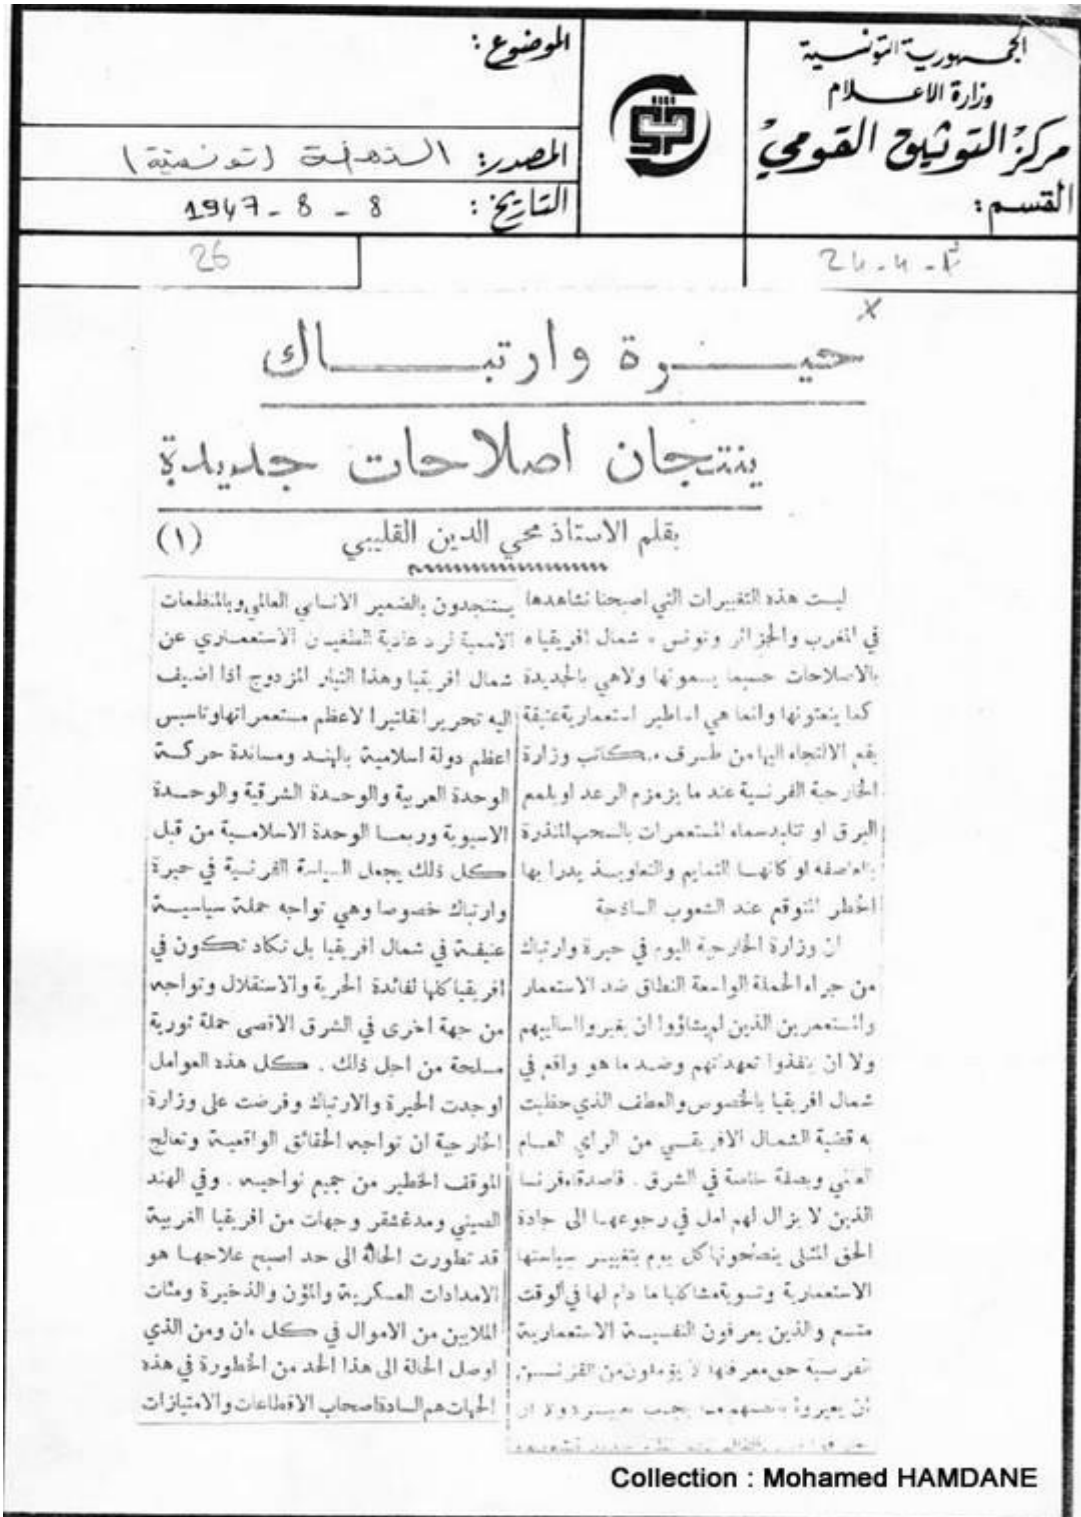 الجمهورية التونسية
وزارة الاعلام
مركز التوثيق القومي
القسم:
الموضوع:
المصدر: النهضة (تونسية)
التاريخ: 8 - 8 - 1947
26
حيرة وارتباك
ينتجان اصلاحات جديدة
بقلم الاستاذ محي الدين القليبي (١)
ليست هذه التغييرات التي اصبحنا نشاهدها
في المغرب والجزائر وتونس « شمال افريقيا »
بالاصلاحات حسبما يسمونها ولاهي بالجديدة
كما ينعتونها وانما هي اساطير استعمارية عتيقة
يقع الالتجاء اليها من طرف مكاتب وزارة
الخارجية الفرنسية عند ما يزمزم الرعد او يلمع
البرق او تتلبد سماء المستعمرات بالسحب المنذرة
بالعاصفه او كانهـا التمايم والتعاويـذ يدرأ بها
الخطر المتوقع عند الشعوب الساذجة
ان وزارة الخارجية اليوم في حيرة وارتباك
من جراء الحملة الواسعة النطاق ضد الاستعمار
والمستعمرين الذين لم يشاؤوا ان يغيروا اساليبهم
ولا ان ينفذوا تعهداتهم وضـد ما هو واقع في
شمال افريقيا بالخصوص والعطف الذي حظيت
به قضية الشمال الافريقـي من الراي العـام
العالمي وبصفة خاصة في الشرق . فاصدقاء فرنسا
الذين لا يزال لهم امل في رجوعهـا الى جادة
الحق المثلى ينصحونها كل يوم بتغييـر سياستها
الاستعمارية وتسوية مشاكلها ما دام لها في الوقت
متسع والذين يعرفون النفسيـة الاستعمارية
الفرنسية حق معرفتها لا يؤملون من الفرنسيين
ان يغيروا
يستنجدون بالضمير الانساني العالمي وبالمنظمات
الاممية لرد عادية الطغيـان الاستعمـاري عن
شمال افريقيا وهذا التيار المزدوج اذا اضيف
اليه تحرير انقلتيرا لاعظم مستعمراتها وتاسيس
اعظم دولة اسلامية بالهنـد ومساندة حركـة
الوحدة العربية والوحـدة الشرقية والوحـدة
الاسيوية وربمـا الوحدة الاسلامـية من قبل
كـل ذلك يجعل السياسة الفرنسية في حيرة
وارتباك خصوصا وهي تواجه حملة سياسيـة
عنيفـة في شمال افريقيا بل تكاد تكون في
افريقيا كلها لفائدة الحرية والاستقلال وتواجه
من جهة اخرى في الشرق الاقصى حملة ثورية
مسلحة من اجل ذلك . كـل هذه العوامل
اوجدت الحيرة والارتباك وفرضت على وزارة
الخارجية ان تواجه الحقائق الواقعيـة وتعالج
الموقف الخطير من جميع نواحيـه . وفي الهند
الصيني ومدغشقر وجهات من افريقيا الغربية
قد تطورت الحالة الى حد اصبح علاجهـا هو
الامدادات العسكرية والمؤن والذخيرة ومئات
الملايين من الاموال في كـل ءان ومن الذي
اوصل الحالة الى هذا الحد من الخطورة في هذه
الجهات هم السادة اصحاب الاقطاعات والامتيازات
Collection : Mohamed HAMDANE